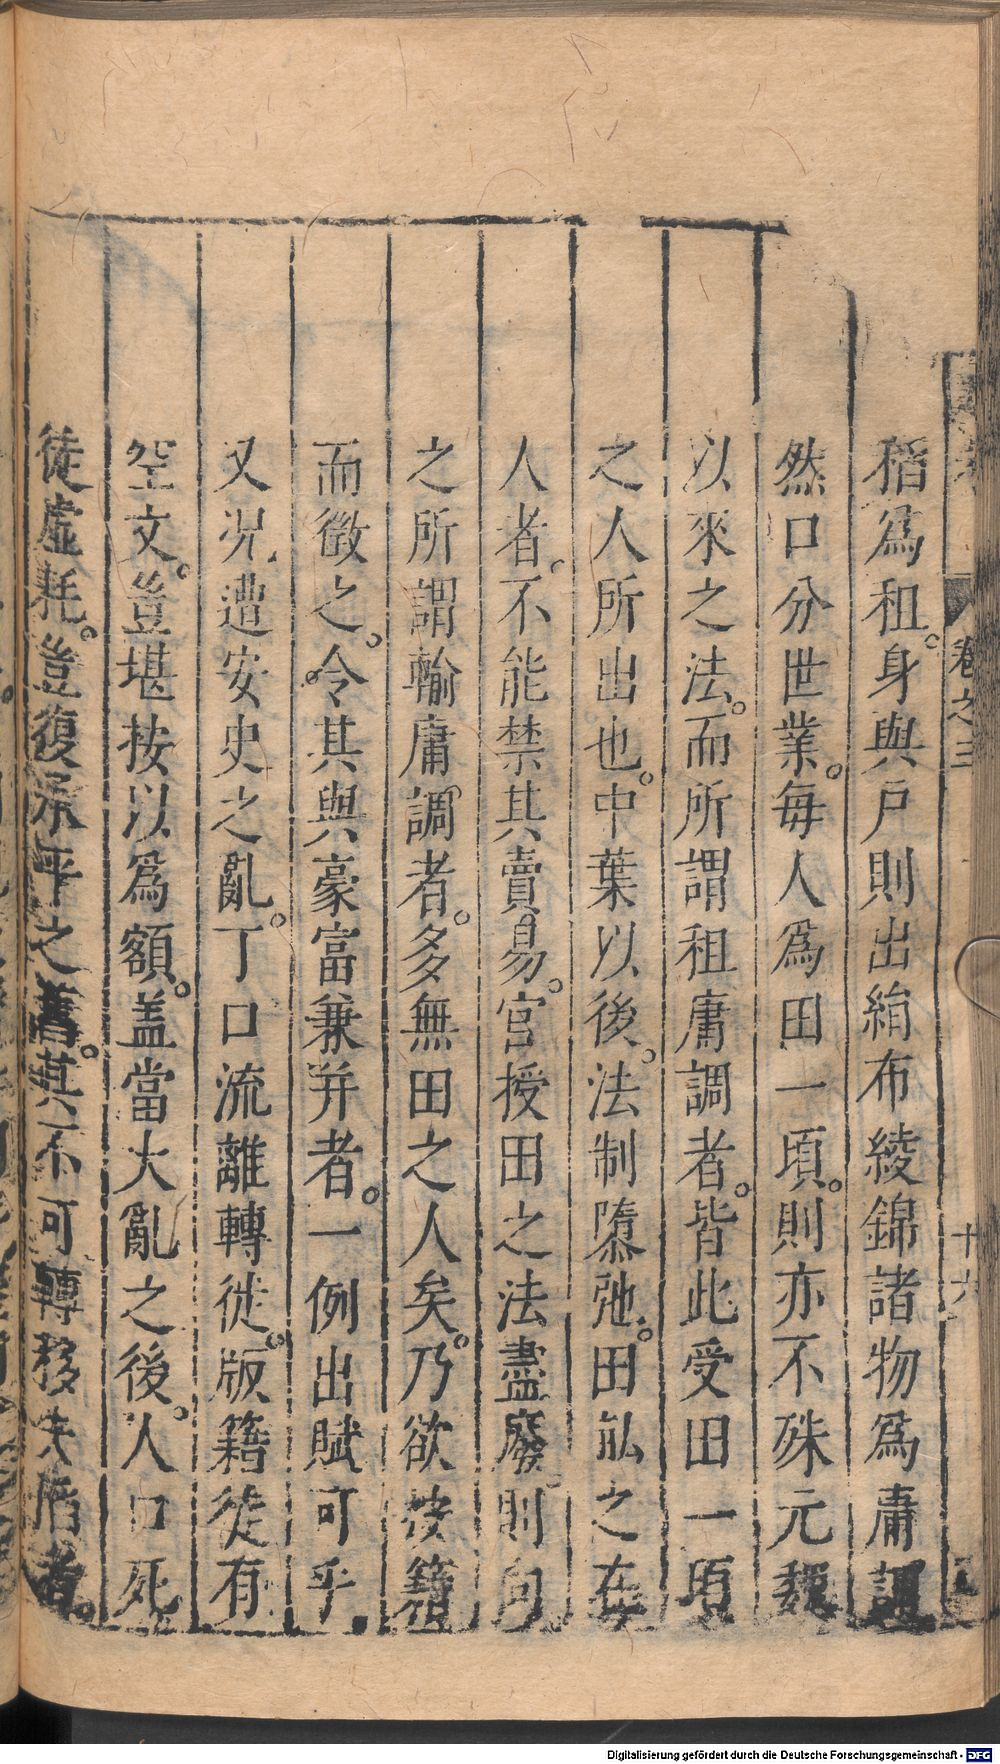 卷之三
十六
稻爲租。身與戶則出絹布綾錦諸物爲庸調
然口分世業。每人爲田一頃。則亦不殊元魏
以來之法。而所謂租庸調者。皆此受田一頃
之人所出也。中葉以後。法制隳弛。田畝之在
人者。不能禁其賣易。官授田之法盡廢。則向
之所謂輸庸調者。多無田之人矣。乃欲按籍
而徵之。令其與豪富兼并者。一例出賦可乎
又況遭安史之亂。丁口流離轉徙。版籍徒有
空文。豈堪按以爲額。盖當大亂之後。人口死
徒虛耗。豈復承平之舊。其不可轉移失
者。
Digitalisierung gefördert durch die Deutsche Forschungsgemeinschaft - DFG